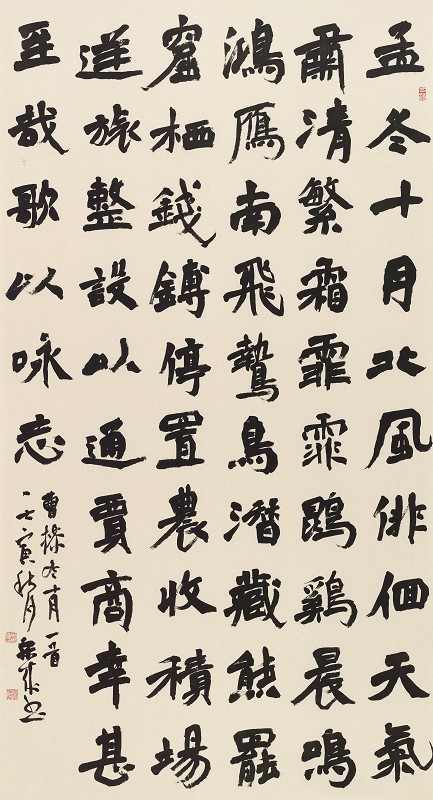 孟冬十月北風俳佪天氣
肅清繁霜霏霏鵾鷄晨鳴
鴻鴈南飛鷙鳥潛藏熊羆
窟栖錢鎛停置農收積場
逆旅整設以通賈商幸甚
至哉歌以咏志
曹操冬十月一首
寅秋月书